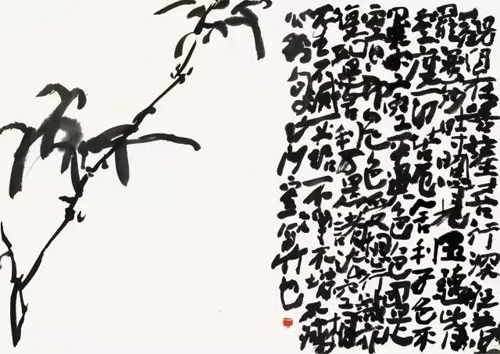 觀自在菩薩行深般若波
羅蜜多時照見五蘊皆
空度一切苦厄舍利子色不
異空空不異色色即是
空空即是色受想行識亦
復如是舍利子是諸法空相
不生不滅不垢不淨不增不減
心經句寫竹也